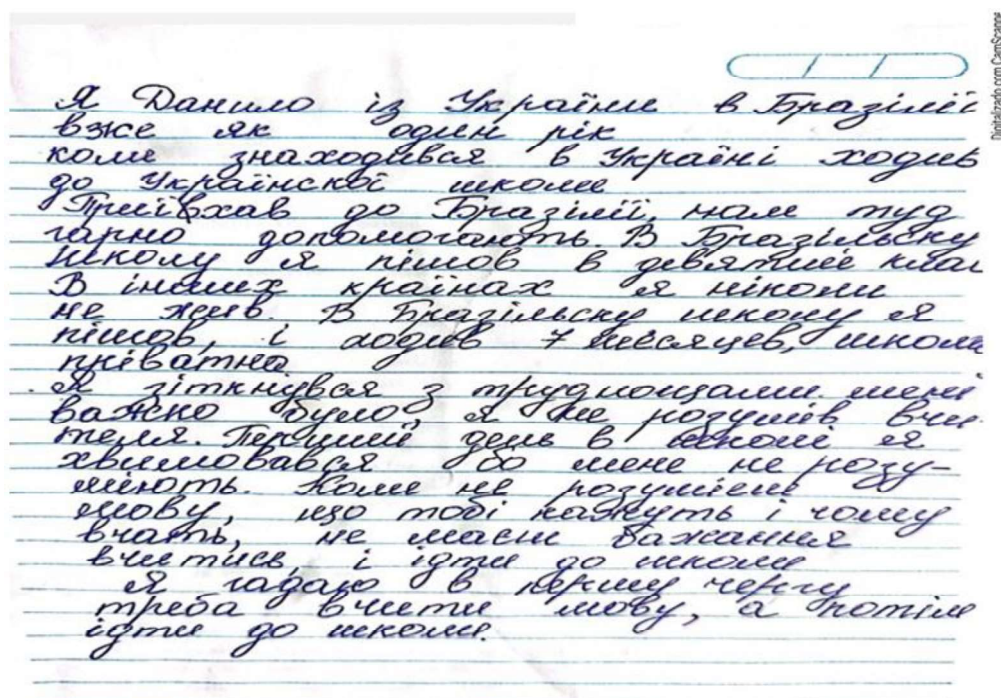 Digitalizado com CamScanne
Я Данило із України в Бразілії
вже як один рік
коли знаходився в Україні ходив
до Українскої школи
Приїхав до Бразілії, нам туд
гарно допомогають. В Бразільску
школу я пішов в девятий клас
В інших країнах я ніколи
не жив. В Бразільску школу я
пішов, і ходив 7 месяцев, школа
приватна
Я зіткнувся з труднощами. мені
важко було, я не розумів вчи-
теля. Перший день в школі я
хвилювався бо мене не розу-
міють. Коли не розумієш
мову, що тобі кажуть і чому
вчать, не маєш бажання
вчитись, і ідти до школи
Я гадаю в першу чергу
треба вчити мову, а потім
ідти до школи.